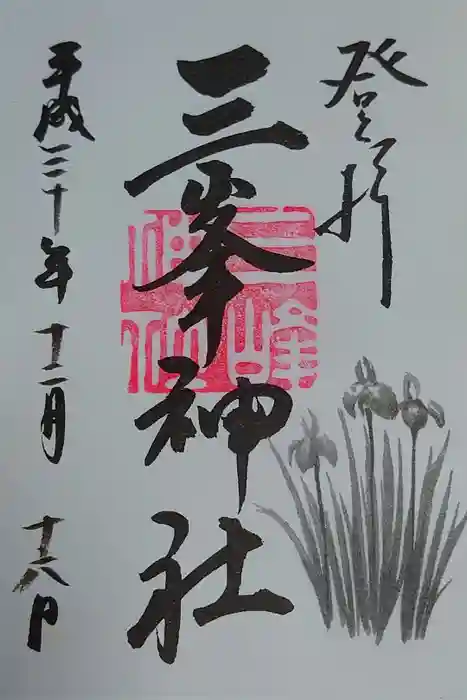 登拝
三峯神社
三峰神社
平成三十年十二月十八日